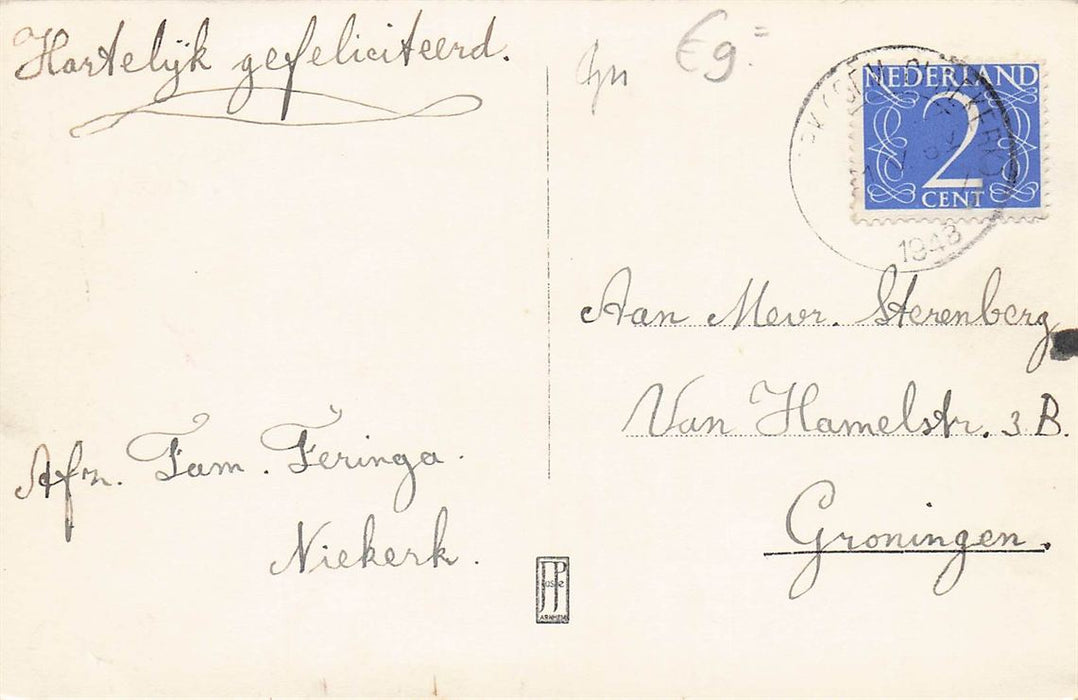 Hartelijk gefeliciteerd.
Afz. Fam. Feringa.
Niekerk.
€ 9=
NEDERLAND
2
CENT
1948
Aan Mevr. Sterenberg
Van Hamelstr. 3 B.
Groningen.
JP
ARNHEM